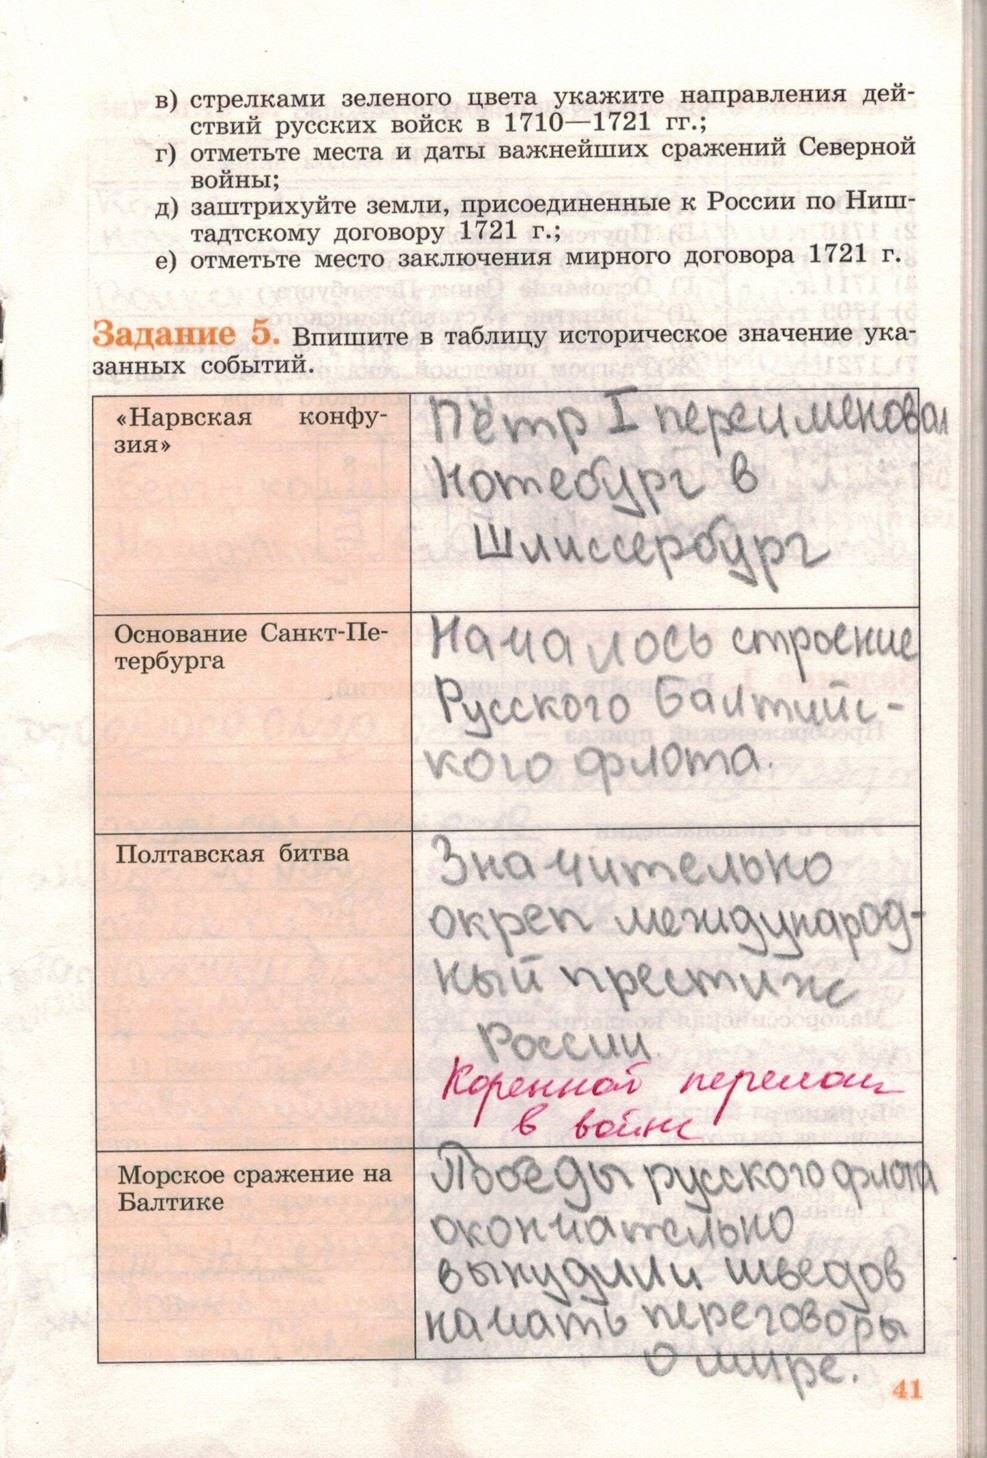 в) стрелками зеленого цвета укажите направления дей-
ствий русских войск в 1710—1721 гг.;
г) отметьте места и даты важнейших сражений Северной
войны;
д) заштрихуйте земли, присоединенные к России по Ниш-
тадтскому договору 1721 г.;
е) отметьте место заключения мирного договора 1721 г.
Задание 5. Впишите в таблицу историческое значение ука-
занных событий.
«Нарвская конфу-
зия»
Пётр I переименовал
Нотебург в
Шлиссербург
Основание Санкт-Пе-
тербурга
Началось строение
Русского Балтийс-
кого флота.
Полтавская битва
Значительно
окреп международ-
ный престиж
России.
Коренной перелом
в войне
Морское сражение на
Балтике
Победы русского флота
окончательно
вынудили шведов
начать переговоры
о мире.
41